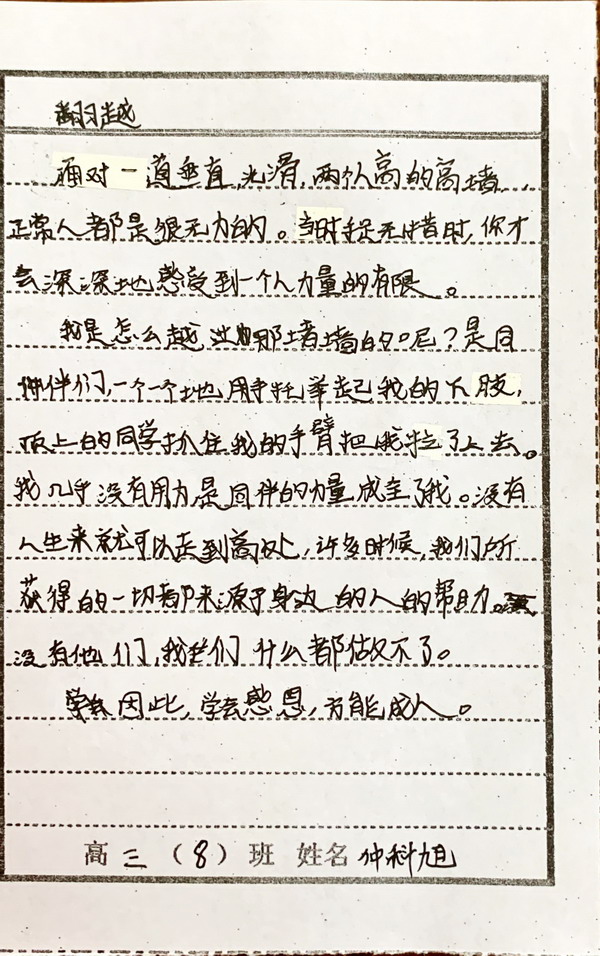 翻越
面对一道垂直,光滑,两个人高的高墙,
正常人都是很无力的。当时手足无措时,你才
会深深地感受到一个人力量的有限。
我是怎么越过那堵墙的呢?是同
伴们,一个一个地用手托举起我的下肢,
顶上的同学抓住我的手臂把我拉了上去。
我几乎没有用力是同伴的力量成全了我。没有
人生来就可以走到高处,许多时候,我们所
获得的一切都来源于身边的人的帮助。
没有他们,我们什么都做不了。
因此,学会感恩,方能成人。
高三(8)班 姓名 仲科旭